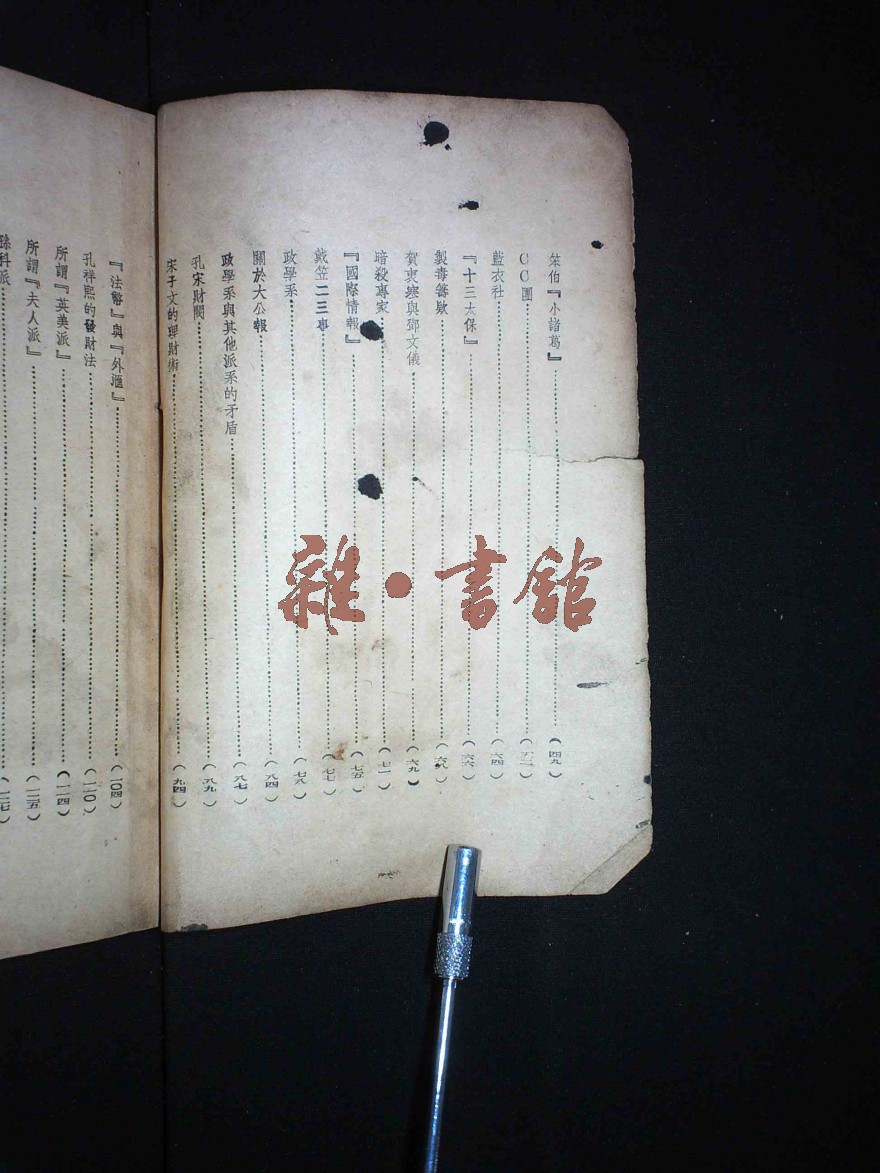 笨伯『小諸葛』……（四九）
CC團……（五一）
藍衣社……（六四）
『十三太保』……（六六）
製毒醫歟……（六八）
賀衷寒與鄧文儀……（六九）
暗殺專家……（七一）
『國際情報』……（七五）
戴笠二三事……（七七）
政學系……（七八）
關於大公報……（八四）
政學系與其他派系的矛盾……（八七）
孔宋財閥……（八九）
宋子文的理財術……（九四）
『法幣』與『外滙』……（一〇四）
孔祥熙的發財法……（一一〇）
所謂『英美派』……（一一四）
所謂『夫人派』……（一二五）
孫科派……（一二七）
雜·書館